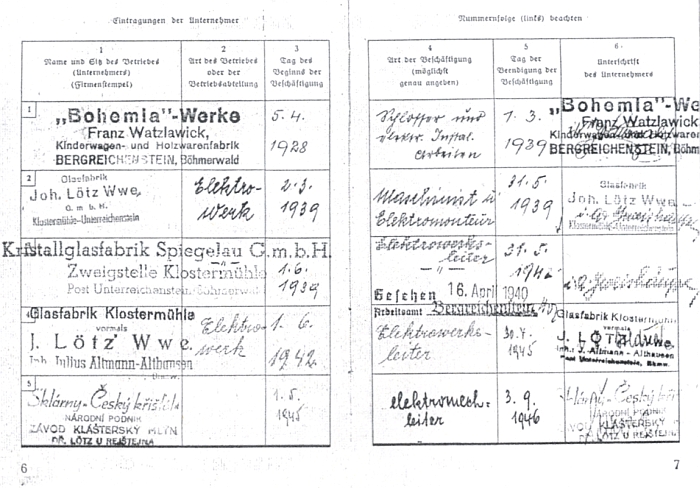 Eintragungen der Unternehmer
1
Name und Sitz des Betriebes
(Unternehmers)
(Firmenstempel)
2
Art des Betriebes
oder der
Betriebsabteilung
3
Tag des
Beginns der
Beschäftigung
1
„Bohemia"-Werke
Franz Watzlawick,
Kinderwagen- und Holzwarenfabrik
BERGREICHENSTEIN, Böhmerwald
5. 4.
1928
2
Glasfabrik
Joh. Lötz Wwe.
G. m. b. H.
Klostermühle-Unterreichenstein
Elektro-
werk
2. 3.
1939
Kristallglasfabrik Spiegelau G.m.b.H.
Zweigstelle Klostermühle
Post Unterreichenstein-Böhmerwald
1. 6.
1939
4
Glasfabrik Klostermühle
vormals
J. Lötz Wwe.
Inh. Julius Altmann-Althausen
Elektro-
werk
1. 6.
1942.
5
Sklárny-Český křišťál
NÁRODNÍ PODNIK
ZÁVOD KLÁŠTERSKÝ MLÝN
DŘ. LÖTZ U REJŠTEJNA
1. 5.
1945
6
Nummernfolge (links) beachten
4
Art der Beschäftigung
(möglichst
genau angeben)
5
Tag der
Beendigung der
Beschäftigung
6.
Unterschrift
des Unternehmers
Schlosser und
elektr. Instal.
Arbeiten
1. 3.
1939
„Bohemia"-We
Franz Watzlawick
Kinderwagen- und Holzwaren
BERGREICHENSTEIN, Böhm
Maschinist u
Elektromonteur
31. 5.
1939
Glasfabrik
Joh. Lötz Wwe.
Klostermühle-Unterreichenstein
Elektrowerks-
leiter
— „ —
31. 5.
1942
Gesehen 16. April 1940
Arbeitsamt Bergreichenstein
Elektrowerks-
leiter
30. 4.
1945
Glasfabrik Klostermühle
vormals
J. LÖTZ
Inh.: J. Altmann - Althausen
Post Unterreichenstein, Bhmw.
elektromech-
leiter
3. 9.
1946
Sklárny-Český křišť
NÁRODNÍ PODNIK
ZÁVOD KLÁŠTERSKÝ
DŘ. LÖTZ U REJŠTEJNA
7